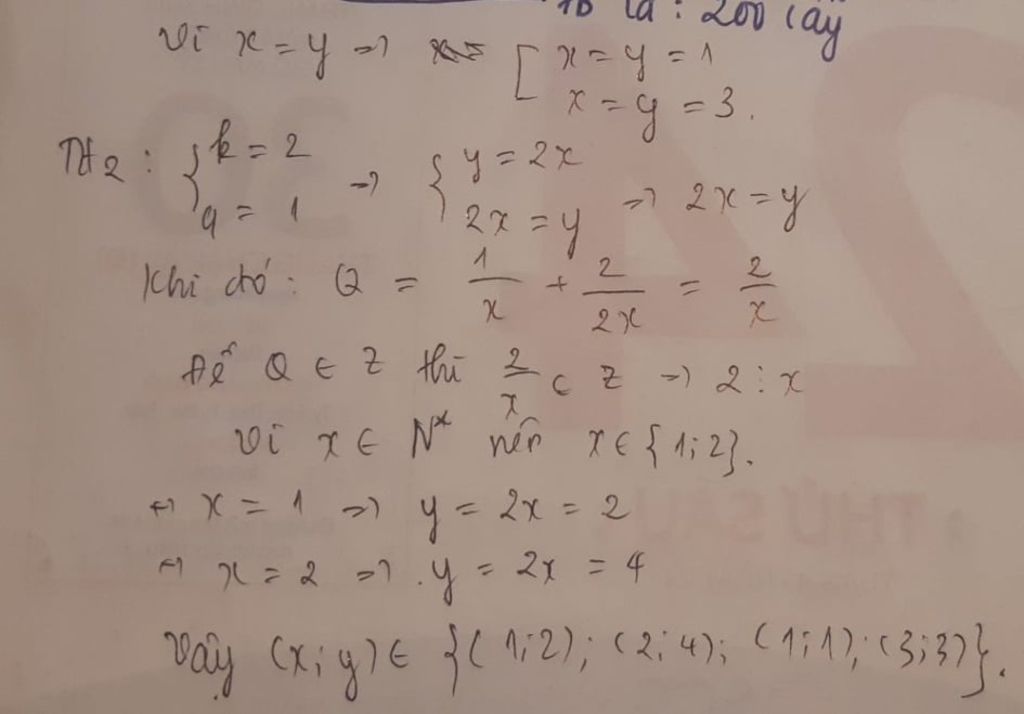 TB là : 200 cây
Vì x = y => [ x = y = 1
x = y = 3.
TH2 : { k = 2 => { y = 2x => 2x = y
q = 1 2x = y
Khi đó : Q = 1/x + 2/2x = 2/x
Để Q ∈ Z thì 2/x ⊂ Z => 2 ⋮ x
Vì x ∈ N* nên x ∈ {1; 2}.
↔ x = 1 => y = 2x = 2
↔ x = 2 => . y = 2x = 4
Vậy (x; y) ∈ {(1; 2); (2; 4); (1; 1); (3; 3)}.
30
24
THỨ SÁU